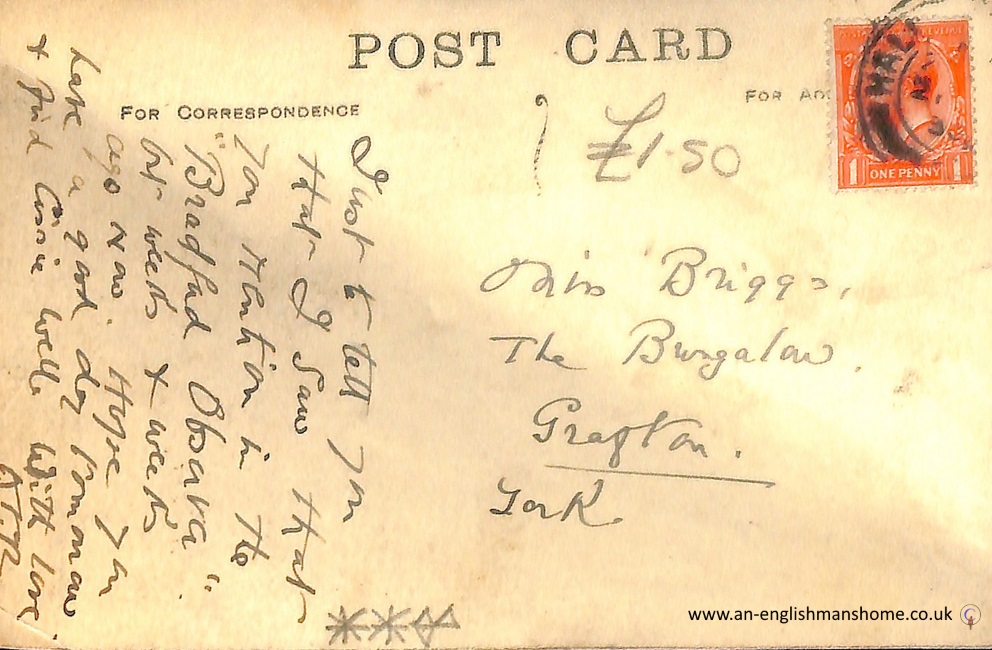 POST CARD
FOR CORRESPONDENCE
FOR AD
£1.50
HAL
ONE PENNY
1 1
Miss Briggs,
The Bungalow.
Grafton.
York
Just to tell you
that I saw that
you mention in the
"Bradford Observer"
weeks & weeks
ago now. Hope you
have a good day tomorrow
& find Cissie well. With love.
www.an-englishmanshome.co.uk